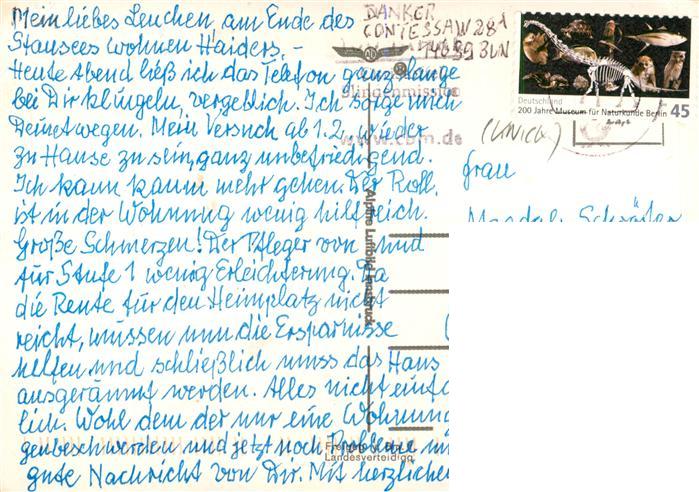 Mein liebes Lenchen, am Ende des
Stausees wohnen Haiders. –
Heute Abend ließ ich das Telefon ganz lange
bei Dir klingeln, vergeblich. Ich sorge mich
Deinetwegen. Mein Versuch ab 1.2. wieder
zu Hause zu sein, ganz unbefriedigend.
Ich kann kaum mehr gehen. Der Roll.
ist in der Wohnung wenig hilfreich.
Große Schmerzen! Der Pfleger von
für Stufe 1 wenig Erleichterung. Da
die Rente für den Heimplatz nicht
reicht, müssen nun die Ersparnisse
helfen und schließlich muss das Haus
ausgeräumt werden. Alles nicht einfa
lich. Wohl dem der nur eine Wohnung
genbeschwerden und jetzt noch Probleme mi
gute Nachricht von Dir. Mit herzliche
DANKER
CONTESSAW 281
www.cbm.de
Deutschland
200 Jahre Museum für Naturkunde Berlin
45
Frau
Alpine Luftbild Innsbruck
Landesverteidig